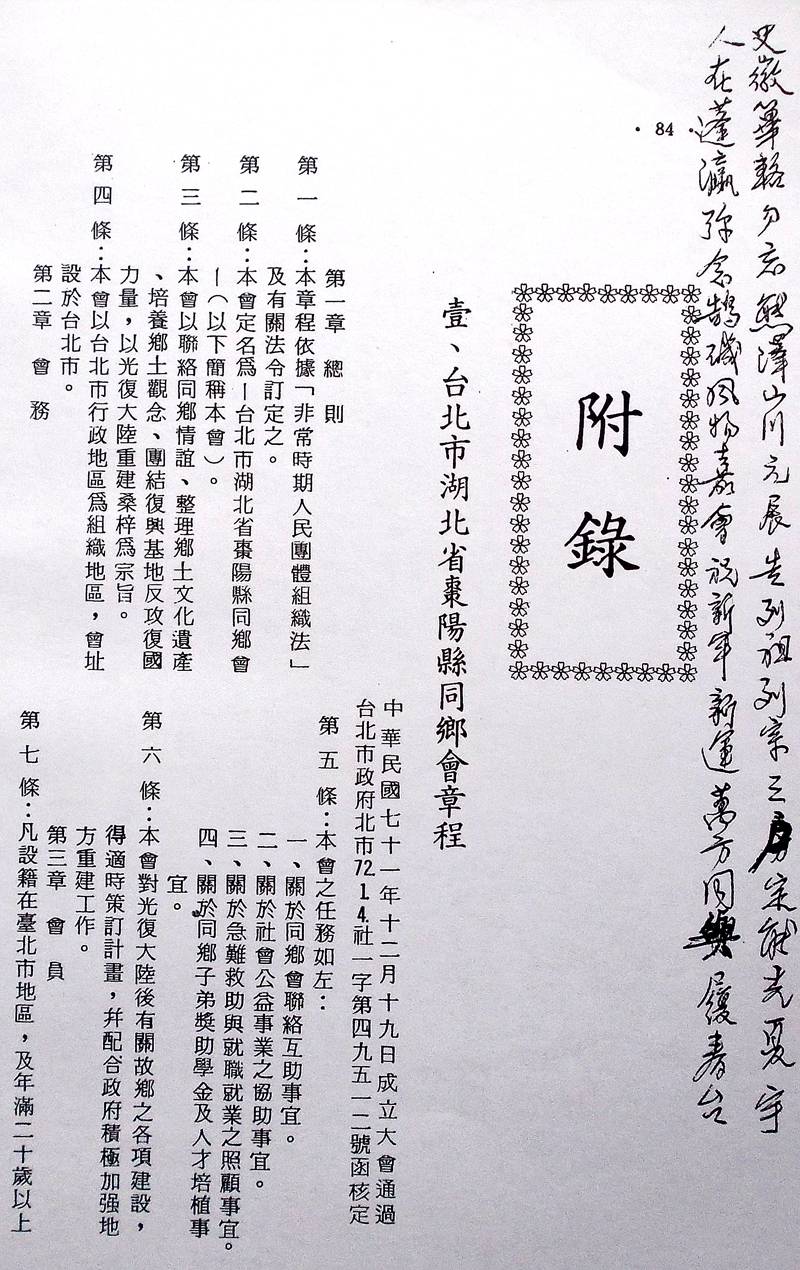 史徽篳輅勿忘熊澤山川元展告列祖列宗三房宗獻光夏宇
人在蓬瀛弥念鵠磯风物嘉會祝新年新運萬方同履春台
· 84 ·
附錄
壹、台北市湖北省棗陽縣同鄉會章程
中華民國七十一年十二月十九日成立大會通過
台北市政府北市72.1.4.社一字第四九五一二號函核定
第一章 總則
第一條：本章程依據「非常時期人民團體組織法」
及有關法令訂定之。
第二條：本會定名爲—台北市湖北省棗陽縣同鄉會
—（以下簡稱本會）。
第三條：本會以聯絡同鄉情誼、整理鄉土文化遺產
、培養鄉土觀念、團結復興基地反攻復國
力量，以光復大陸重建桑梓爲宗旨。
第四條：本會以台北市行政地區爲組織地區，會址
設於台北市。
第二章 會務
第五條：本會之任務如左：
一、關於同鄉會聯絡互助事宜。
二、關於社會公益事業之協助事宜。
三、關於急難救助與就職就業之照顧事宜。
四、關於同鄉子弟獎助學金及人才培植事
宜。
第六條：本會對光復大陸後有關故鄉之各項建設，
得適時策訂計畫，幷配合政府積極加强地
方重建工作。
第三章 會員
第七條：凡設籍在臺北市地區，及年滿二十歲以上